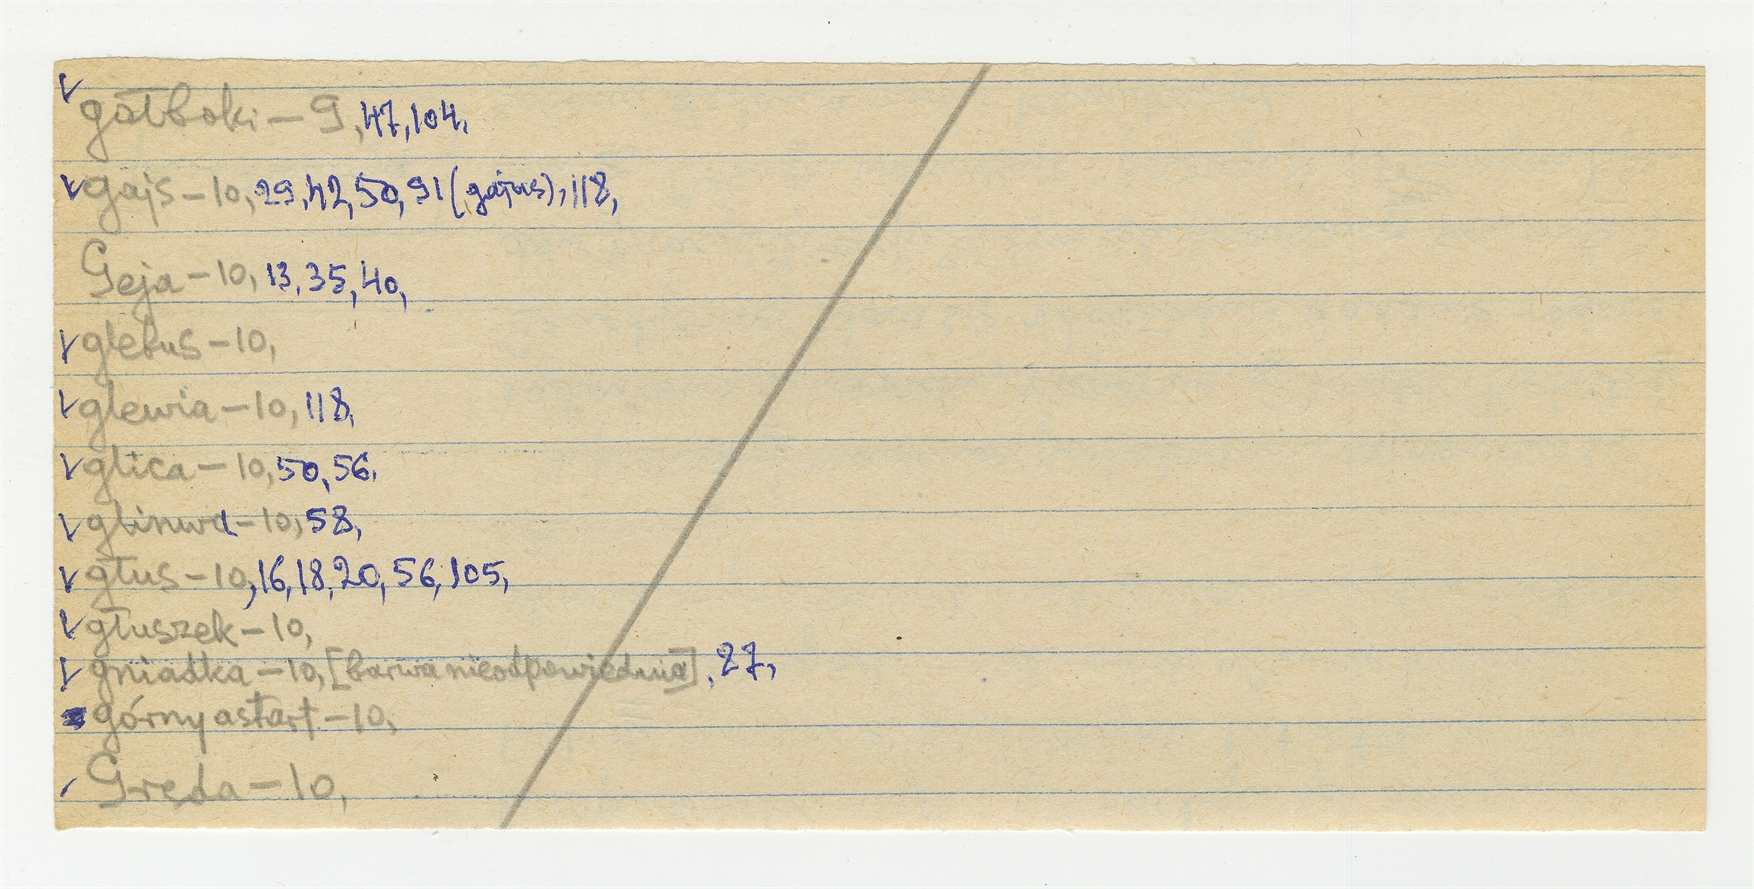 gałboki – 9, 47, 104,
gajs – 10, 29, 42, 50, 91 (gajus), 118,
Geja – 10, 13, 35, 40,
glebus – 10,
glewia – 10, 118,
glica – 10, 50, 56,
glinwa – 10, 58,
głus – 10, 16, 18, 20, 56, 105,
głuszek – 10,
gniadka – 10, [barwa nieodpowiednia], 27,
górny astart – 10,
Gręda – 10,